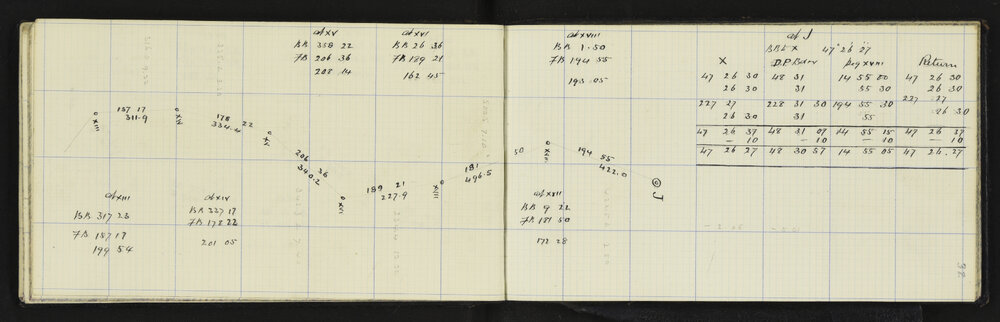 at XV
BB 358 22
FB 206 36
208 14
at XVI
BB 26 36
FB 189 21
162 45
157 17
311.9
o XIII
o XIV
178 22
334.4
o XV
206 36
340.2
o XVI
189 21
227.9
o XVII
181 50
496.5
at XIII
BB 317 23
FB 157 17
199 54
at XIV
BB 337 17
FB 178 22
201 05
at XVIII
BB 1.50
FB 194 55
193 05
o XVIII
194 55
422.0
J
at XVII
BB 9 22
FB 181 50
172 28
at J
BB to X 47° 26' 27
X Peg XVIII Return
47 26 30 48 31 14 55 00 47 26 30
26 30 31 55 30 26 30
227 27 228 31 30 194 55 30 227 27
26 30 31 55 26 30
47 26 37 48 31 07 14 55 15 47 26 37
– 10 – 10 – 10 – 10
47 26 27 48 30 57 14 55 05 47 26 27
32